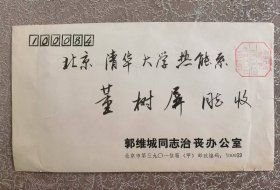 100084
北京 清华大学热能系
董树屏 同志 收
郭维城同志治丧办公室
北京市第三九〇一信箱（甲）邮政编码：100039